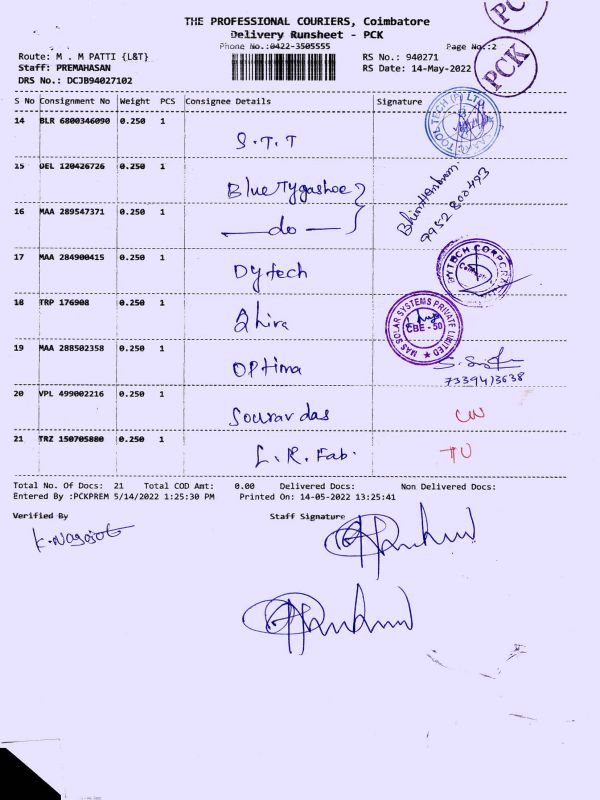 THE PROFESSIONAL COURIERS, Coimbatore
Delivery Runsheet - PCK
Phone No.:0422-3505555 Page No.:2
Route: M . M PATTI {L&T} RS No.: 940271
Staff: PREMAHASAN RS Date: 14-May-2022
DRS No.: DCJB94027102
PCK
PCK
S No Consignment No Weight PCS Consignee Details Signature
14 BLR 6800346090 0.250 1 S.T.T
15 DEL 120426726 0.250 1 BlueTygashoe
9952 800493
16 MAA 289547371 0.250 1 do
17 MAA 284900415 0.250 1 Dytech
18 TRP 176908 0.250 1 Ahira
MAS SOLAR SYSTEMS PRIVATE LIMITED ★ CBE - 50
19 MAA 288502358 0.250 1 Optima
7339413638
20 VPL 499002216 0.250 1 Sourav das
21 TRZ 150705880 0.250 1 L.R. Fab.
Total No. Of Docs: 21 Total COD Amt: 0.00 Delivered Docs: Non Delivered Docs:
Entered By :PCKPREM 5/14/2022 1:25:30 PM Printed On: 14-05-2022 13:25:41
Verified By Staff Signature